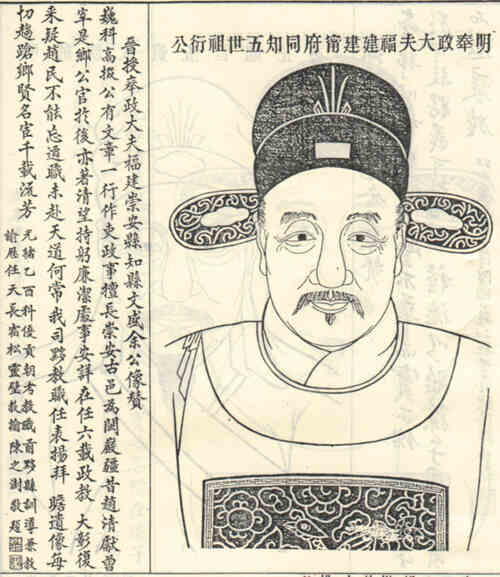 明奉政大夫福建建甯府同知五世祖衍公
晉授奉政大夫福建崇安縣知縣文盛余公像贊
巍科高掇公有文章一行作吏政事擅長崇安古邑為閩巖疆昔趙清獻曾
宰是鄉公官於後亦著清望持躬廉潔處事安詳在任六載政教大彰復
來疑趙民不能忘職未赴天道何常我司黟教職任表揚拜瞻遺像每
切趨蹌鄉賢名宦千載流芳
光緒乙酉科優貢朝考教職前黟縣訓導兼教
諭歷任天長宿松靈璧教諭陳之澍敬題